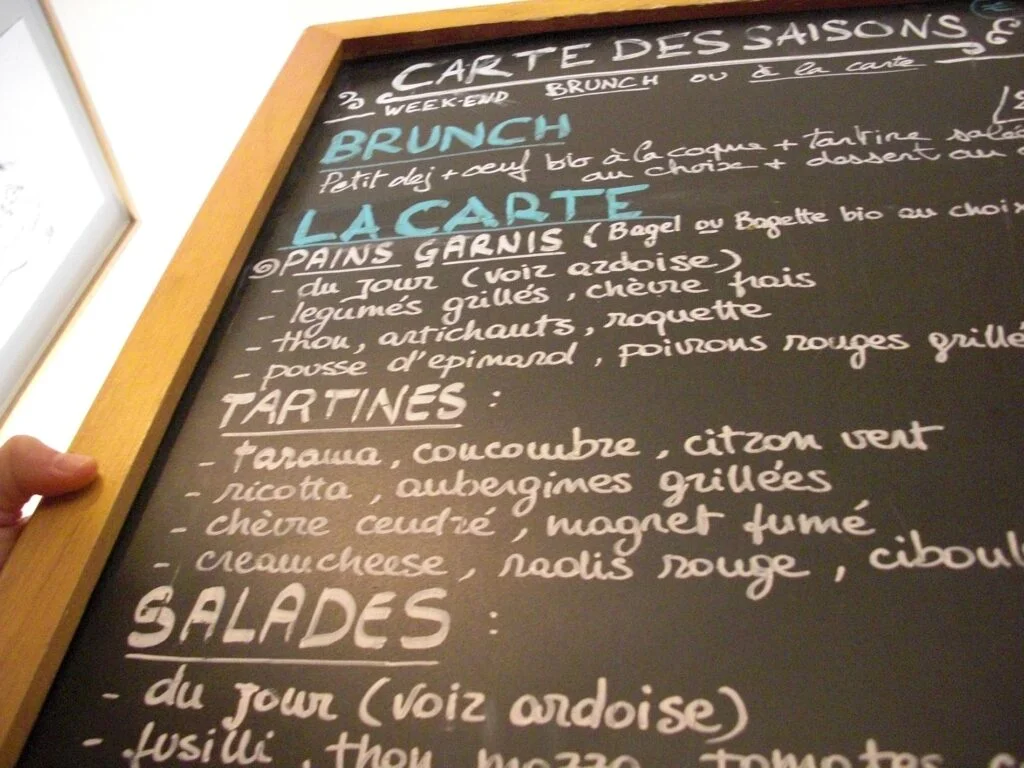 CARTE DES SAISONS
WEEK-END BRUNCH ou à la carte
BRUNCH
Petit dej + oeuf bio à la coque + tartine salée
au choix + dessert au
LA CARTE
PAINS GARNIS (Bagel ou Bagette bio au choix
- du jour (voir ardoise)
- légumes grillés, chèvre frais
- thon, artichauts, roquette
- pousse d'epinard, poivrons rouges grillé
TARTINES :
- tarama, concombre, citron vert
- ricotta, aubergines grillées
- chèvre cendré, magret fumé
- creamcheese, radis rouge, ciboul
SALADES :
- du jour (voir ardoise)
- fusilli, thon, mozza, tomates